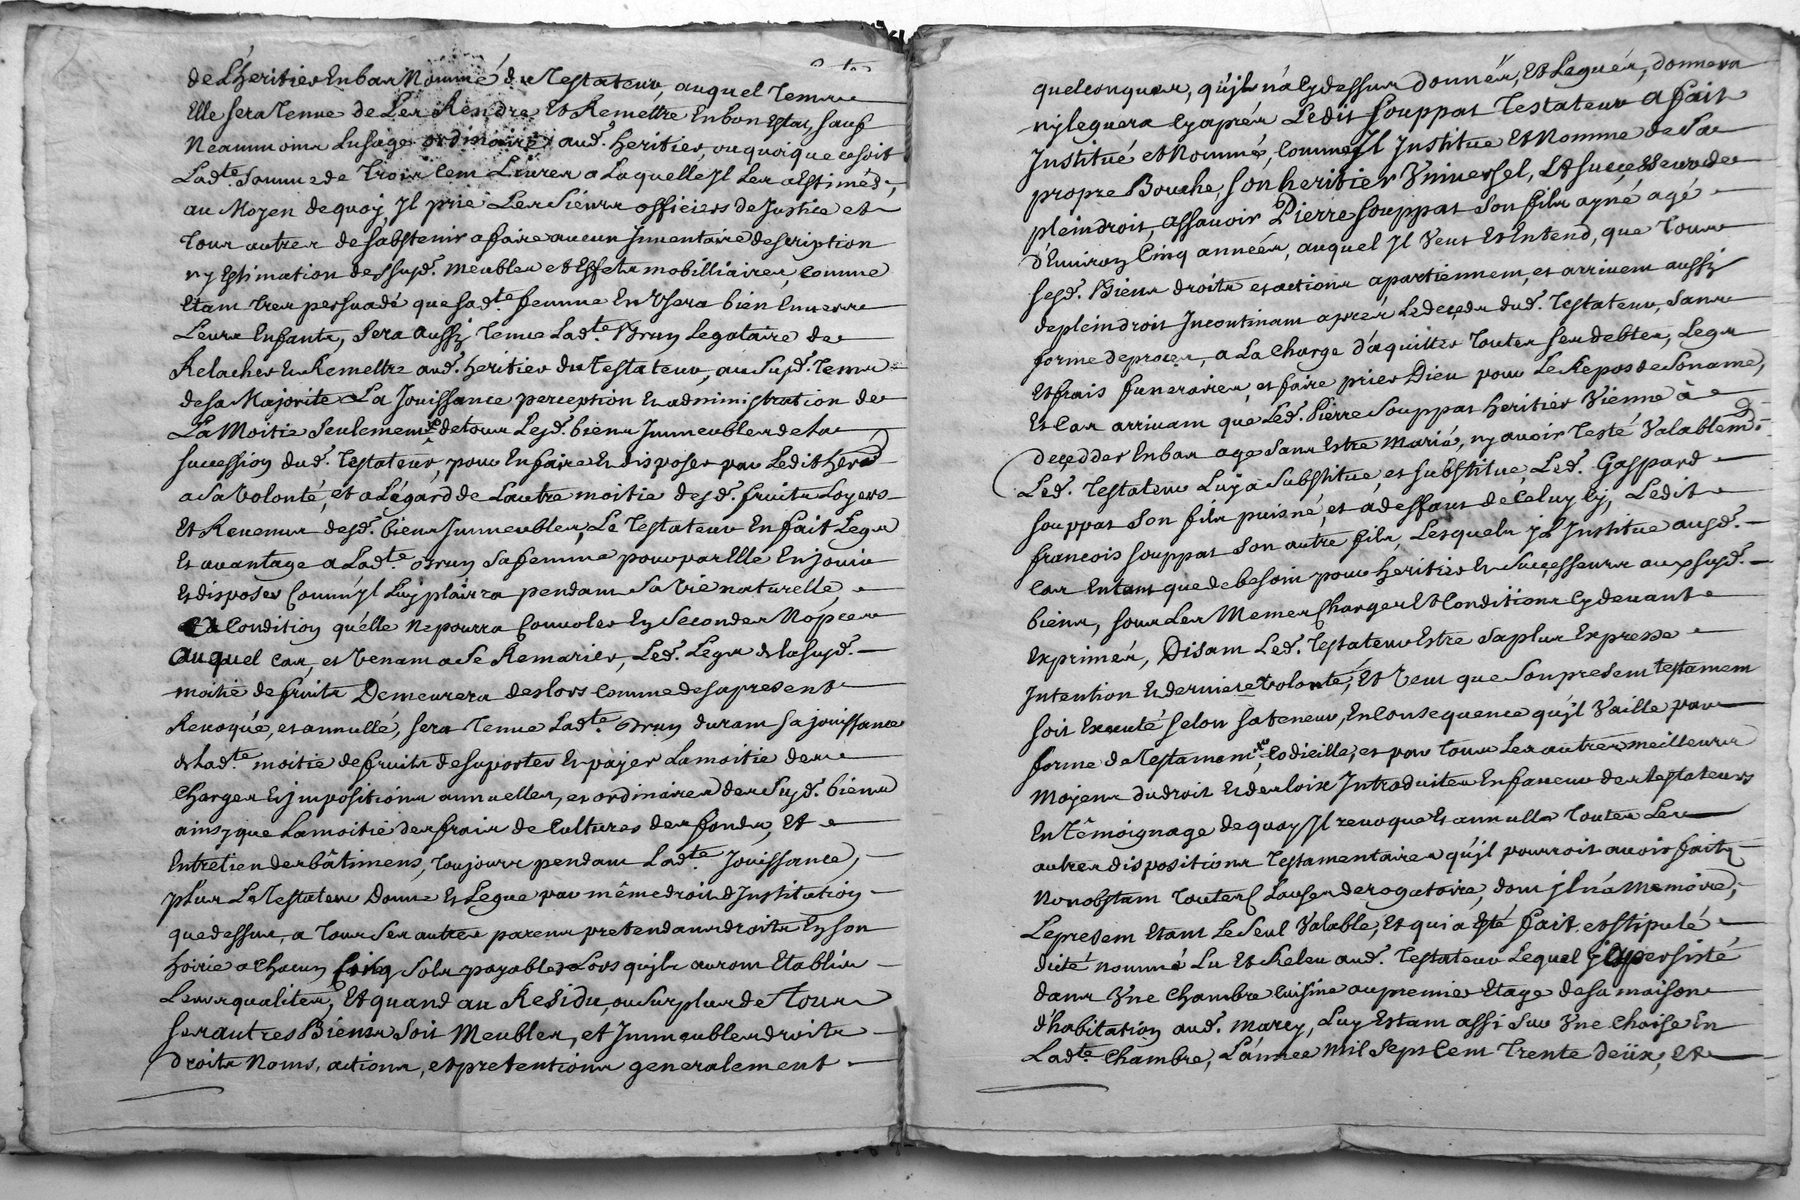 de L'heritier En bas Nommé du Testateur, auquel Tems
Elle sera Tenue de Les Rendre Et Remettre En bon Estat, sauf
Neanmoins Lusage ordinaire, aud. heritier, ou quoique ce soit
Ladte. somme de Trois Cent Livres a Laquelle Il Les a Estimés,
au Moyen de quoy, Il prie Les Sieurs officiers de Justice et
Tous autres de sabstenir a faire aucun Inventaire description
ny Estimation desd. susd. meubles et Effets mobilliaires, Comme
Etant Tres persuadé que sadte femme En Usera bien Envers
Leurs Enfants, sera aussy Tenue Ladte. Brun Legataire de
Relacher et Remettre aud. heritier du Testateur, au susd. Tems
de sa Majorite La Jouissance perception Et administration de
La Moitie seulement de tous Lesd. biens Immeubles de La
succession dud. Testateur, pour En faire Et disposer par Ledit herer
a sa Volonté, et a L'égard de Lautre moitie desd. fruits Loyers
Et Revenus desd. biens Immeubles, Le Testateur En fait Legs
Et avantage a Ladte. Brun sa femme pour par Elle En jouir
Et disposer Comm'jl Luy plairra pendant sa Vie naturelle,
Et a Condition qu'elle Ne pourra Convoler En secondes Nopces
auquel Cas, et Venant a se Remarier, Led. Legs de lasusd.
moitié de fruits Demeurera deslors comme des apresent
Revoqué, et annullé, sera Tenue Ladte. Brun durant sa jouissance
de Ladte. moitié de fruits de suporter Et payer La moitie des
Charges Et Impositions annuelles, et ordinaires des susd. biens
ainsy que La moitie des frais de Cultures des fonds, Et
Entretien des bâtimens, Toujours pendant Ladte Jouissance,
plus Le Testateur Donne Et Legue par même droit d'Institution
que dessus, a Tous ses autres parens pretendans droits En son
hoirie a chacun Cinq Sols payables Lors qu'ils auront Etablis
Leurs qualites, Et quand au Residu, ou surplus de Tous
ses autres Biens soit Meubles, et Immeubles droits
droits Noms, actions, et pretentions generalement
quelconques, qu'jl n'a Cy dessus donnés, et Legués, donnera
ny leguera Cy aprés Ledit Souppat Testateur a fait
Institué et Nommé, Comme Il Institue Et Nomme de Sa
propre Bouche, Son heritier Universel, Et successeur de
plein droit, assavoir Pierre Souppat son fils ayné agé
d'Environ Cinq années, auquel Il Veut Et Entend, que Tous
sesd. Biens droits et actions apartiennent, et arrivent aussy
de plein droit Incontinant aprés Le decés dud. Testateur, sans
forme de procés, a La Charge d'aquitter Toutes ses debtes, Legs
Et frais funeraires, et faire prier Dieu pour Le Repos de Son ame,
Et Cas arrivant que Led. Pierre Souppat heritier Vienne à
deçedder En bas age sans Estre Marié, ny avoir Testé Valablemt.
Led. Testateur Luy a Substitué, et substitue, Led. Gaspard
Souppat Son fils puisné, et a deffaut de Celuy Cy, Ledit
francois Souppat Son autre fils, Lesquels jl Institue ausd.
Cas En tant que de besoin pour heritiers Et Successeurs aux susd.
biens, sous Les Memes Charges Et Conditions Cy devant
Exprimés, Disant Led. Testateur Estre sa plus Expresse
Intention Et derniere Volonté, Et Veut que Son present testament
soit Executé selon sa teneur, En Consequence qu'jl Vaille par
forme de Testament, Codicille, et par Tous Les autres meilleurs
Moyens du droit Et des loix Introduites En faveur des testateurs
En Têmoignage de quoy Il revoque Et annulle Toutes Les
autres dispositions Testamentaires qu'jl pourroit avoir fait
Nonobstant Toutes Clauses derogatoire, dont jl n'a Memoire,
Le present Etant Le Seul Valable, Et qui a Eté fait et stipulé
dicté nommé Lu Et Releu aud. Testateur Lequel y a persisté
dans Une Chambre Cuisine au premier Etage de sa maison
d'habitation aud. Marcy, Luy Estant assi sur Une Chaise En
Ladte. Chambre, L'année Mil sept Cent Trente Deüx, et